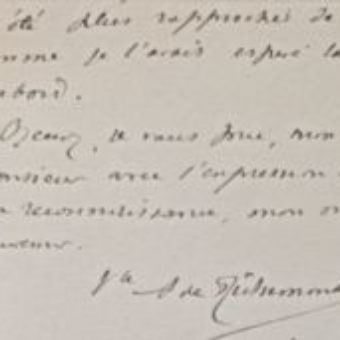 été plus rapprochés de
omme je l'avais espéré la
abord.
je vous prie, mon
onsieur avec l'expression
reconnaissance, mon
Vte de Richemond